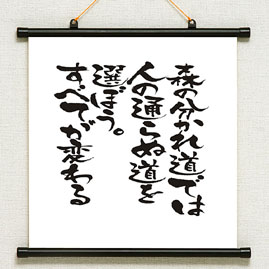 森の分かれ道では
人の通らぬ道を
選ぼう。
すべてが変わる